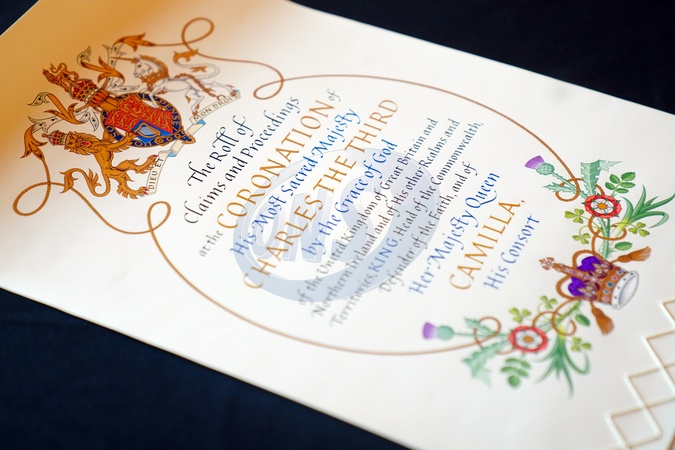 DIEU ET MON DROIT
The Roll of
Claims and Proceedings
at the CORONATION of
His Most Sacred Majesty
CHARLES THE THIRD
by the Grace of God
of the United Kingdom of Great Britain and
Northern Ireland and of His other Realms and
Territories KING, Head of the Commonwealth,
Defender of the Faith, and of
Her Majesty Queen
CAMILLA,
His Consort